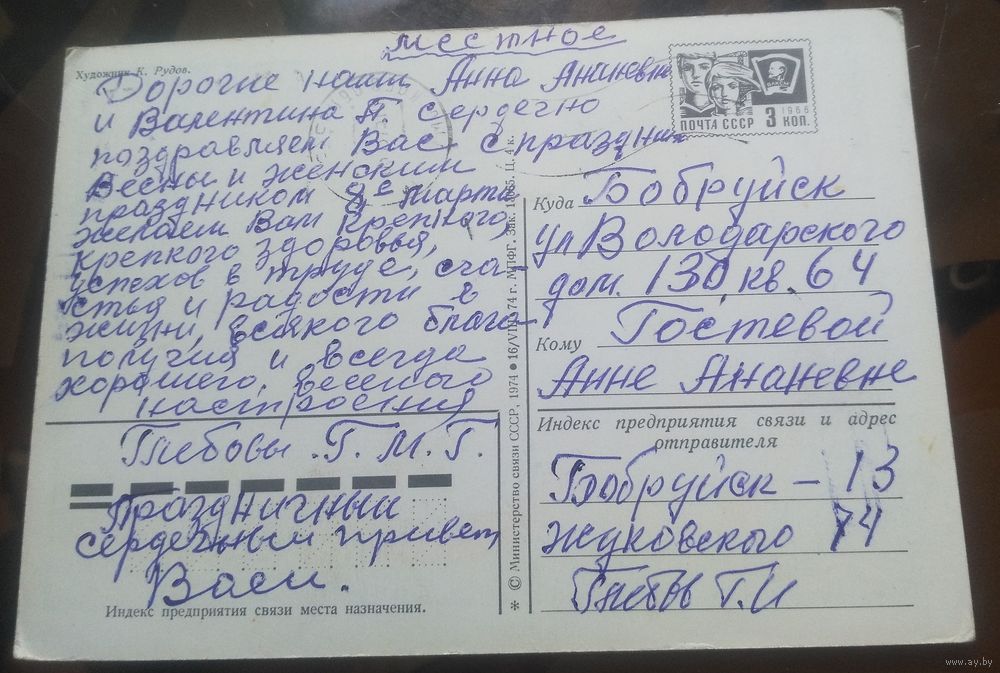 местное
Художник К. Рудов.
Дорогие наши Анна Ананевна
и Валентина П. сердечно
поздравляем Вас с праздник
Весны и женским
праздником 8е марта
желаем Вам крепкого,
крепкого здоровья,
успехов в труде, сча-
стья и радости в
жизни, всякого благо-
получия и всегда
хорошего, веселого
настроения
Глебовы. Г. М. Г.
Праздничный
сердечный привет
Васи.
Индекс предприятия связи места назначения.
* © Министерство связи СССР, 1974 • 16/VIII 74 г. МПФГ. Зак. Ц. 4 к.
ПОЧТА СССР 3 КОП.
1966
ВЛКСМ
Куда Бобруйск
ул Володарского
дом. 130 кв. 64
Кому Гостевой
Анне Ананевне
Индекс предприятия связи и адрес
отправителя
Бобруйск - 13
Жуковского 74
Глебов Г. И
www.ay.by